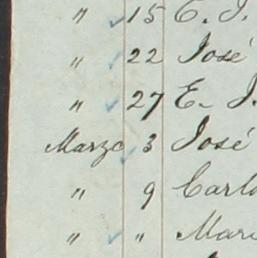 " 15 E. J.
" 22 José
" 27 E. J.
Marzo 3 José
" 9 Carlo
" " Mari